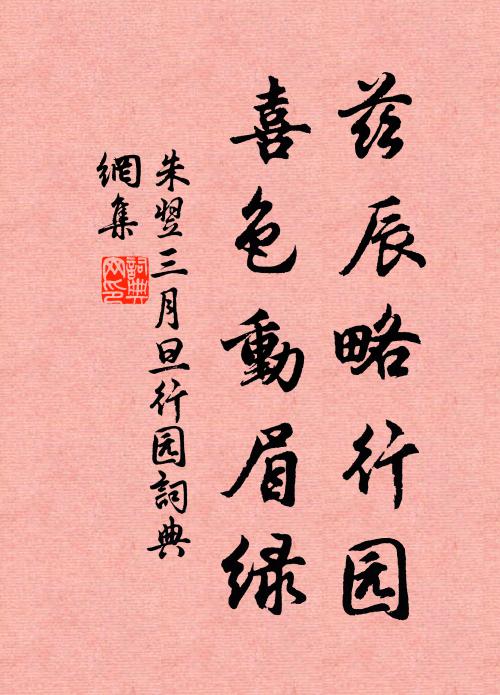 兹辰略行园
喜色動眉绿
朱翌三月旦行园詞典
網集
詞典
网印